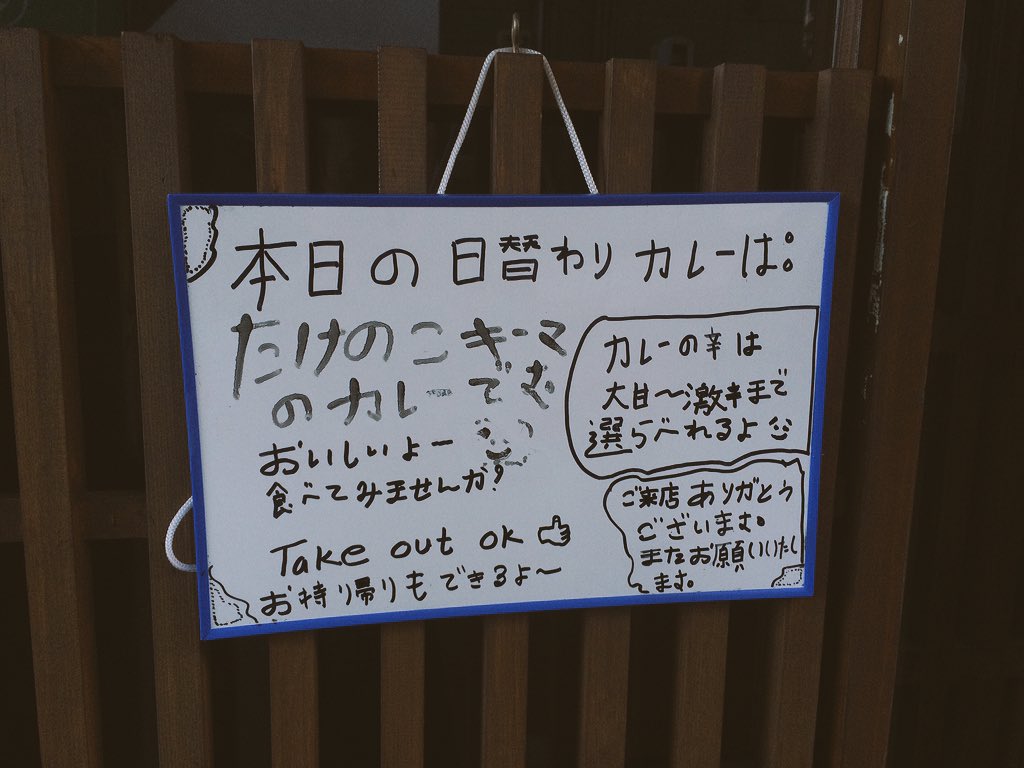 本日の日替わりカレーは:
たけのこキーマ
のカレーでむ
おいしいよー
食べてみませんか?
Take out ok
お持り帰りもできるよ〜
カレーの辛は
大甘〜激辛まで
選らべれるよ
ご来店ありがとう
ございまむ。
またお願いいたし
ます。